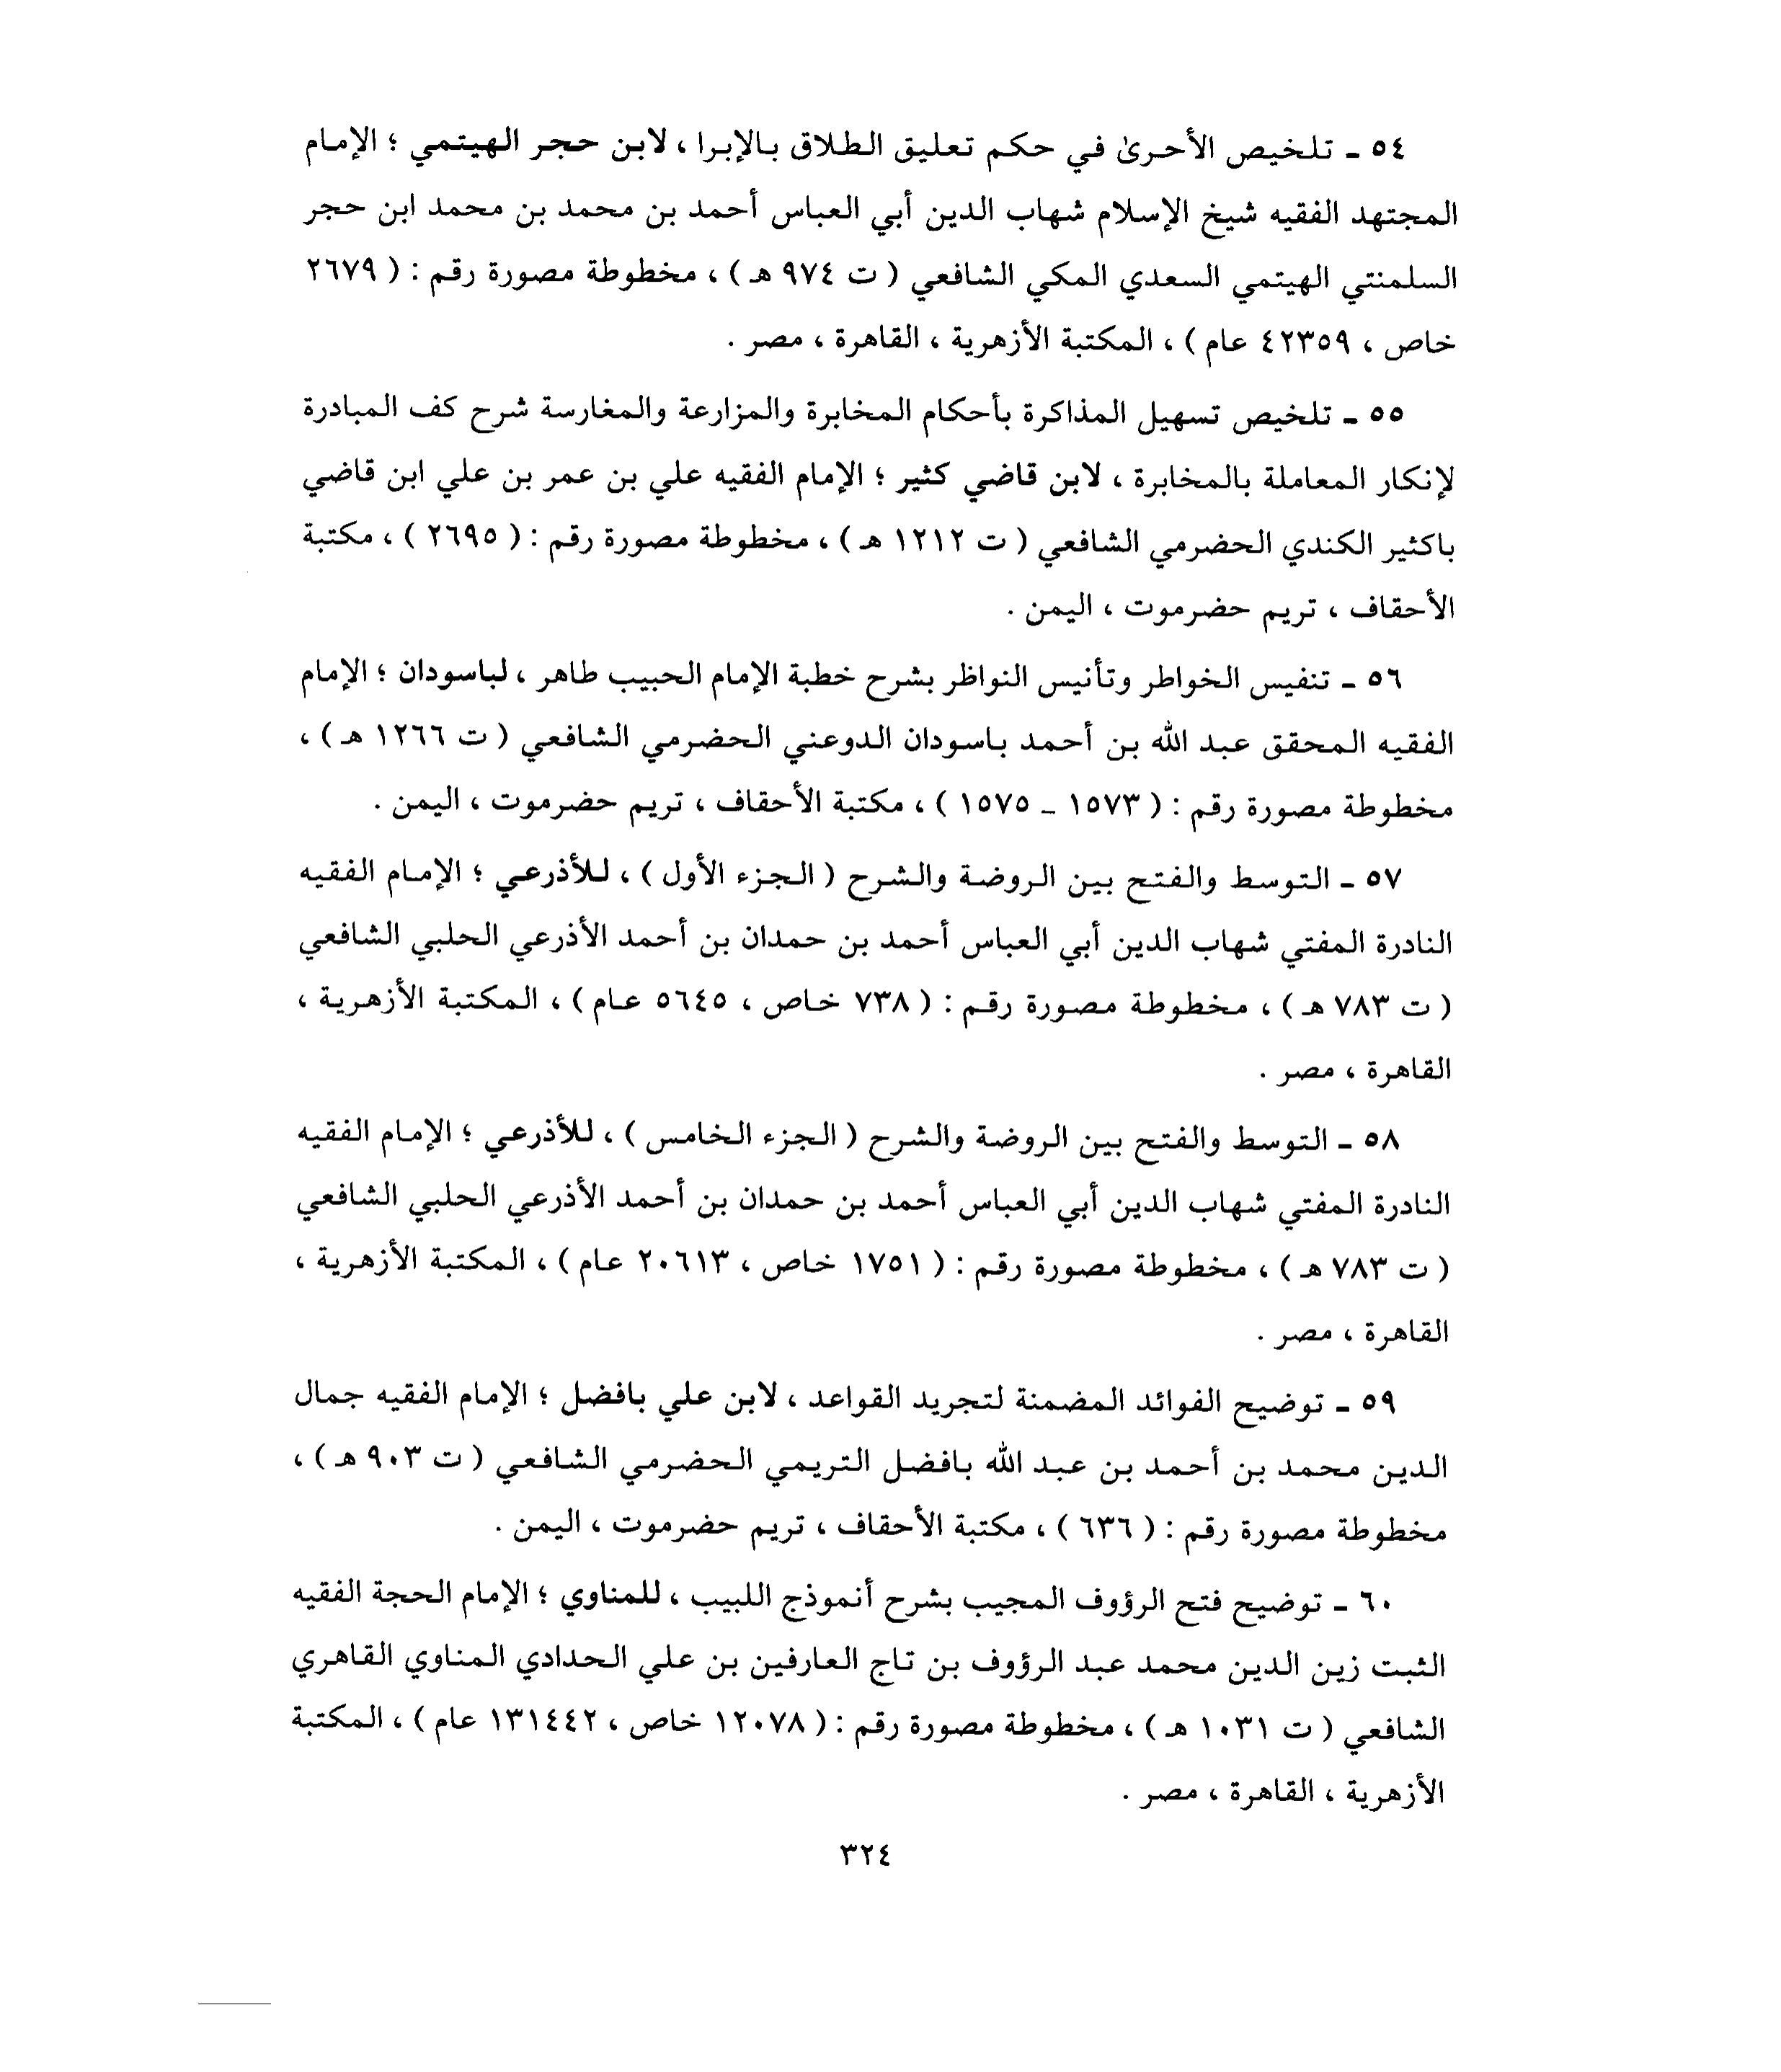 ٥٤ ـ تلخيص الأحرىٰ في حكم تعليق الطلاق بالإبرا ، لابن حجر الهيتمي ؛ الإمام
المجتهد الفقيه شيخ الإسلام شهاب الدين أبي العباس أحمد بن محمد بن محمد ابن حجر
السلمنتي الهيتمي السعدي المكي الشافعي ( ت ٩٧٤ هـ ) ، مخطوطة مصورة رقم : ( ٢٦٧٩
خاص ، ٤٢٣٥٩ عام ) ، المكتبة الأزهرية ، القاهرة ، مصر .
٥٥ ـ تلخيص تسهيل المذاكرة بأحكام المخابرة والمزارعة والمغارسة شرح كف المبادرة
لإنكار المعاملة بالمخابرة ، لابن قاضي كثير ؛ الإمام الفقيه علي بن عمر بن علي ابن قاضي
باكثير الكندي الحضرمي الشافعي ( ت ١٢١٢ هـ ) ، مخطوطة مصورة رقم : ( ٢٦٩٥ ) ، مكتبة
الأحقاف ، تريم حضرموت ، اليمن .
٥٦ ـ تنفيس الخواطر وتأنيس النواظر بشرح خطبة الإمام الحبيب طاهر ، لباسودان ؛ الإمام
الفقيه المحقق عبد الله بن أحمد باسودان الدوعني الحضرمي الشافعي ( ت ١٢٦٦ هـ ) ،
مخطوطة مصورة رقم : ( ١٥٧٣ ـ ١٥٧٥ ) ، مكتبة الأحقاف ، تريم حضرموت ، اليمن .
٥٧ ـ التوسط والفتح بين الروضة والشرح ( الجزء الأول ) ، للأذرعي ؛ الإمام الفقيه
النادرة المفتي شهاب الدين أبي العباس أحمد بن حمدان بن أحمد الأذرعي الحلبي الشافعي
( ت ٧٨٣ هـ ) ، مخطوطة مصورة رقم : ( ٧٣٨ خاص ، ٥٦٤٥ عام ) ، المكتبة الأزهرية ،
القاهرة ، مصر .
٥٨ ـ التوسط والفتح بين الروضة والشرح ( الجزء الخامس ) ، للأذرعي ؛ الإمام الفقيه
النادرة المفتي شهاب الدين أبي العباس أحمد بن حمدان بن أحمد الأذرعي الحلبي الشافعي
( ت ٧٨٣ هـ ) ، مخطوطة مصورة رقم : ( ١٧٥١ خاص ، ٢٠٦١٣ عام ) ، المكتبة الأزهرية ،
القاهرة ، مصر .
٥٩ ـ توضيح الفوائد المضمنة لتجريد القواعد ، لابن علي بافضل ؛ الإمام الفقيه جمال
الدين محمد بن أحمد بن عبد الله بافضل التريمي الحضرمي الشافعي ( ت ٩٠٣ هـ ) ،
مخطوطة مصورة رقم : ( ٦٣٦ ) ، مكتبة الأحقاف ، تريم حضرموت ، اليمن .
٦٠ ـ توضيح فتح الرؤوف المجيب بشرح أنموذج اللبيب ، للمناوي ؛ الإمام الحجة الفقيه
الثبت زين الدين محمد عبد الرؤوف بن تاج العارفين بن علي الحدادي المناوي القاهري
الشافعي ( ت ١٠٣١ هـ ) ، مخطوطة مصورة رقم : ( ١٢٠٧٨ خاص ، ١٣١٤٤٢ عام ) ، المكتبة
الأزهرية ، القاهرة ، مصر .
٣٢٤